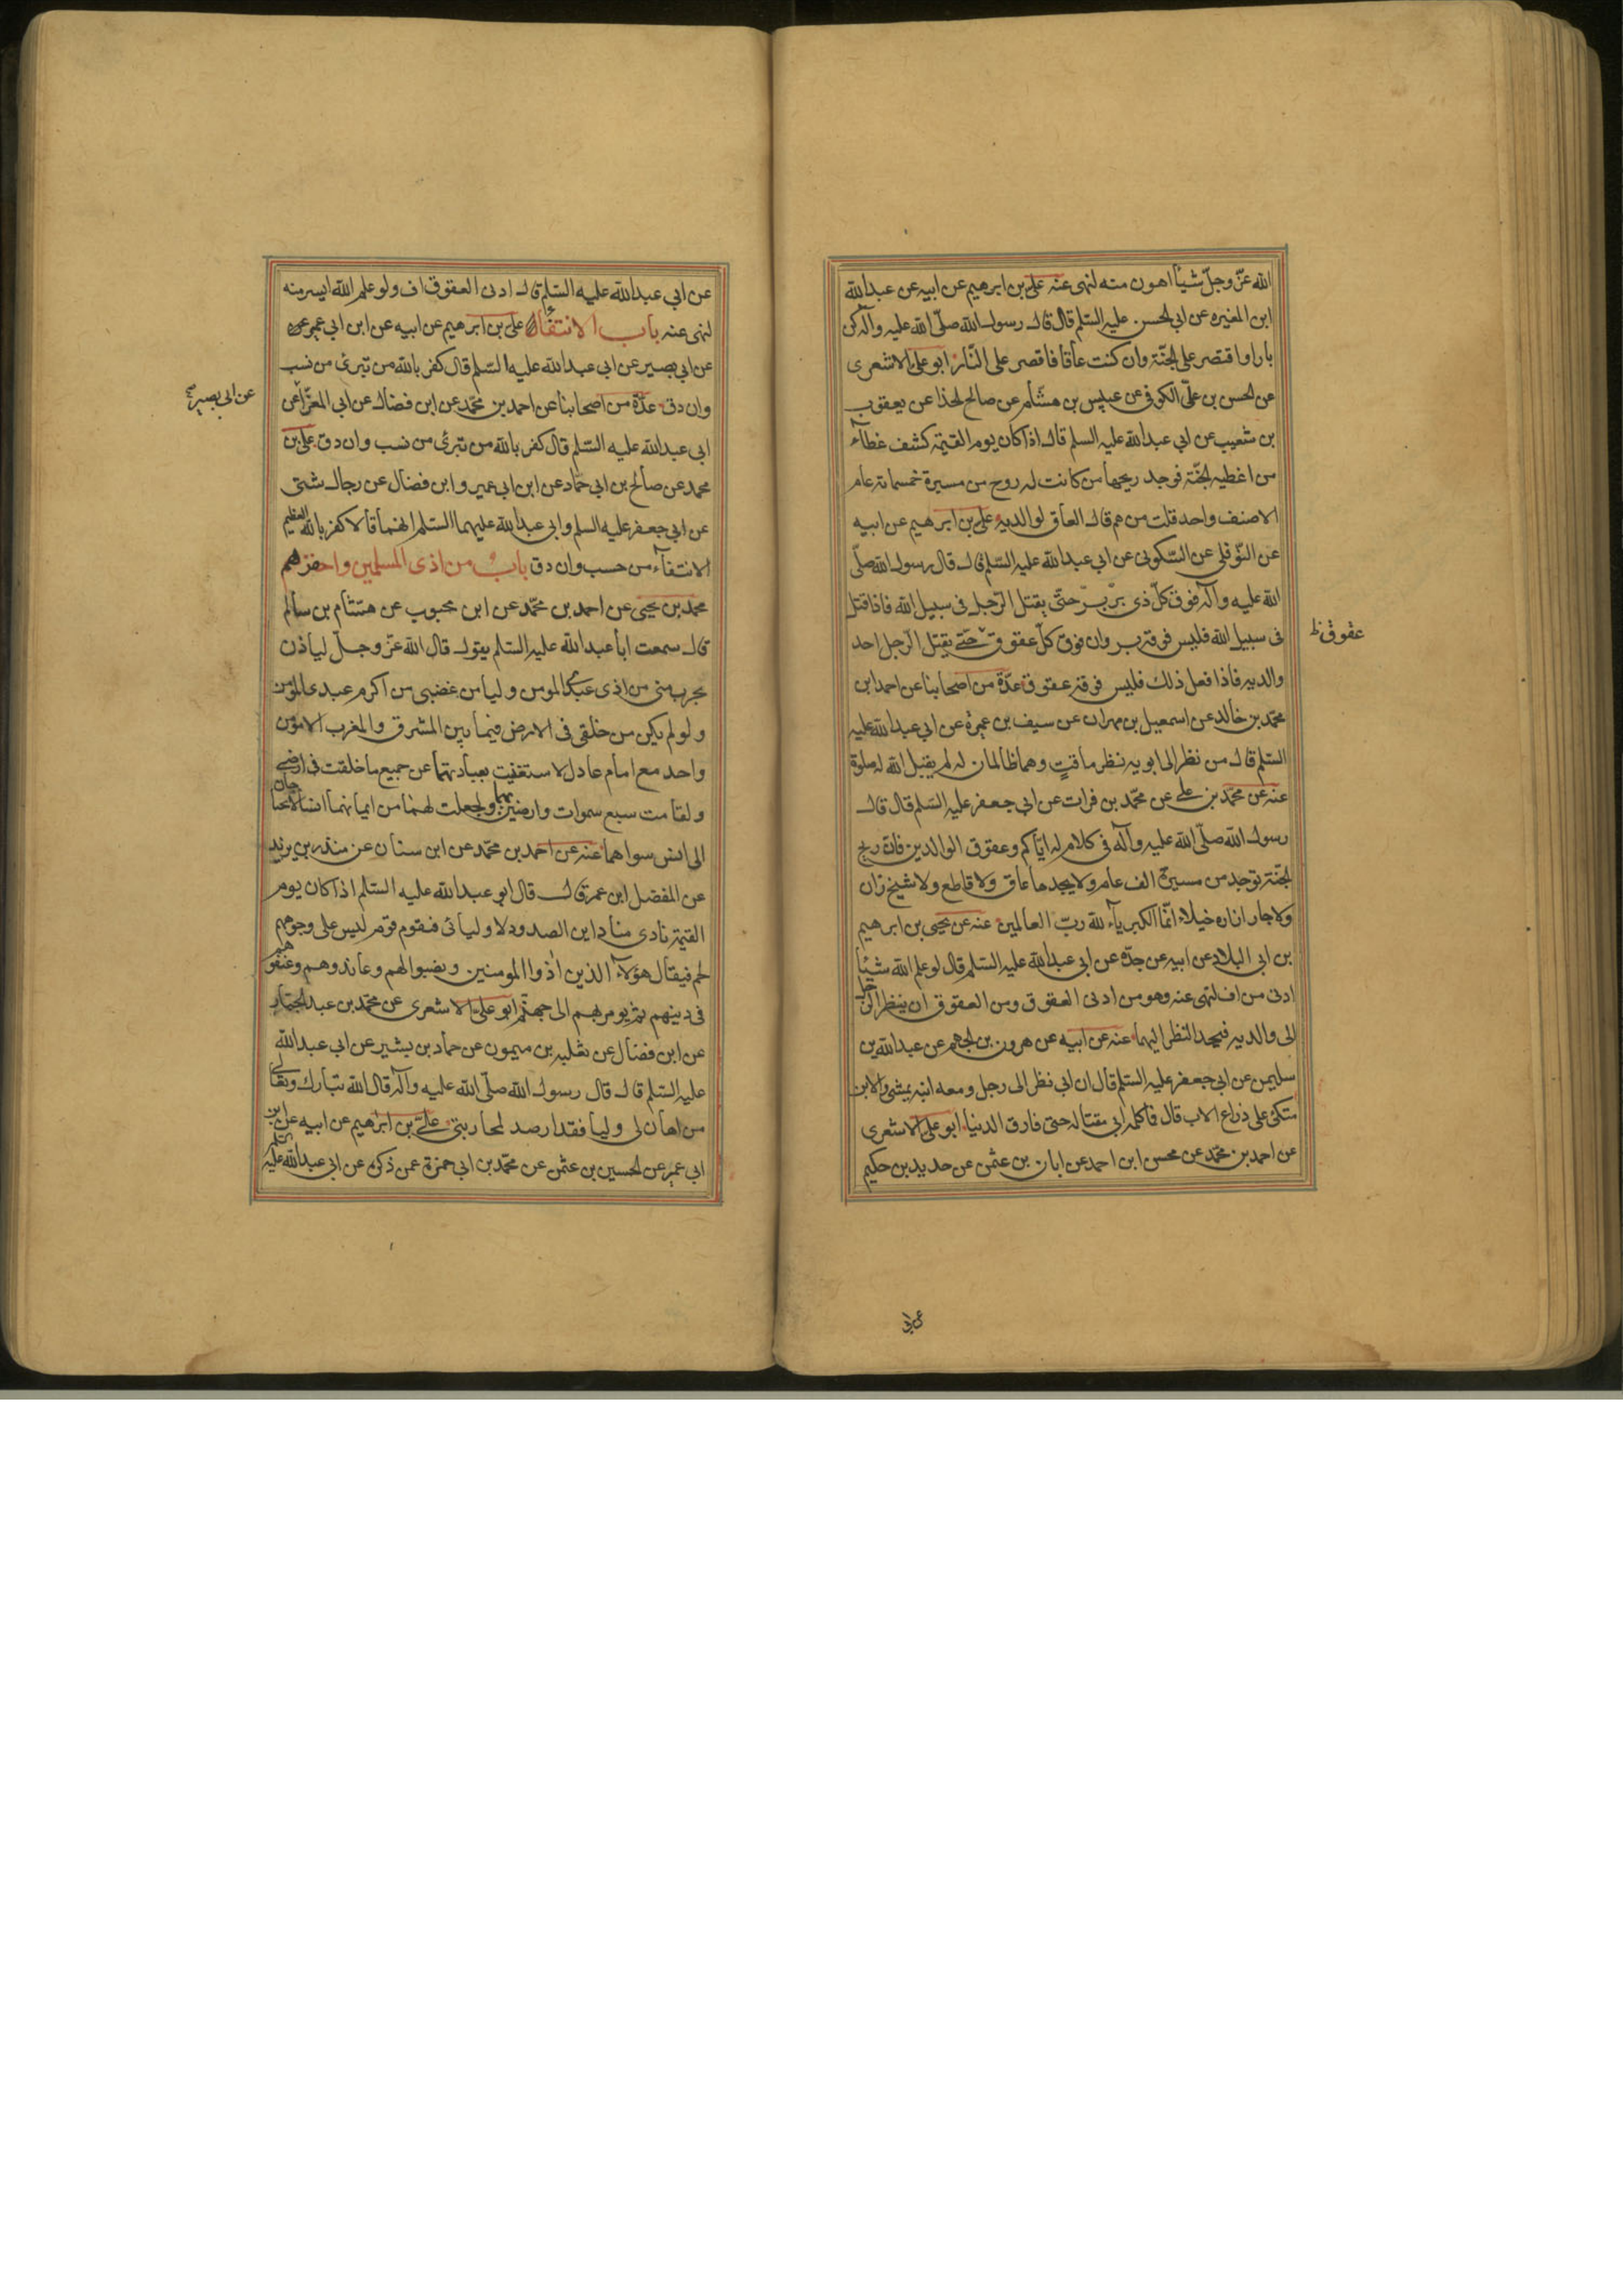 الله عزّ وجلّ شيأ اهون منه لنهى عنه علی بن ابرهيم عن ابيه عن عبدالله
ابن المغيره عن ابي الحسن عليه السّلم قال قال رسول الله صلّى الله عليه وآله كن
بارا واقتصر على الجنّة وان كنت عاقا فاقصر على النّار ابو علی الاشعرى
عن الحسن بن علىّ الكوفى عن عبيس بن هشام عن صالح الحذا عن يعقوب
بن شعيب عن ابي عبدالله عليه السلم قال اذا كان يوم القيمة كشف غطاء
من اغطيه الجنّة فوجد ريحها من كانت له روح من مسيرة خمسمائة عام
الا صنف واحد قلت من هم قال العاق لوالديه علی بن ابرهيم عن ابيه
عن النّوفلى عن السّكونى عن ابي عبدالله عليه السّلم قال قال رسول الله صلّى
الله عليه وآله فوق كلّ ذى برّ برّ حتّى يقتل الرّجل فى سبيل الله فاذا قتل
فى سبيل الله فليس فوقه بر وان فوق كلّ عقوق حتّى يقتل الرّجل احد
عقوق ظ
والديه فاذا فعل ذلك فليس فوقه عقوق عدّة من اصحابنا عن احمد ابن
محمّد بن خالد عن اسمعيل بن مهران عن سيف بن عميرة عن ابي عبدالله عليه
السّلم قال من نظر الى ابويه نظر ماقتٍ وهما ظالمان له لم يقبل الله له صلوة
عنه عن محمّد بن على عن محمّد بن فرات عن ابي جعفر عليه السّلم قال قال
رسول الله صلّى الله عليه وآله فى كلام له ايّاكم وعقوق الوالدين فانّ ريح
الجنّة توجد من مسيرة الف عام ولا يجدها عاق ولا قاطع ولا شيخ زان
ولا جار ازاره خيلاء انّما الكبرياء لله ربّ العالمين عنه عن يحيى بن ابرهيم
بن ابي البلاد عن ابيه عن جدّه عن ابي عبدالله عليه السّلم قال لو علم الله شيئا
ادنى من اف لنهى عنه وهو من ادنى العقوق ومن العقوق ان ينظر الرّجل
الى والديه فيحد النظر اليهما عنه عن ابيه عن هرون بن الجهم عن عبدالله بن
سليمن عن ابي جعفر عليه السّلم قال ان ابي نظر الى رجل ومعه ابنه يمشى والابن
متكئ على ذراع الاب قال فما كلمه ابي مقتا له حتى فارق الدنيا ابو علی الاشعرى
عن احمد بن محمّد عن محسن ابن احمد عن ابان بن عثمن عن حديد بن حكيم
عن ابي
عن ابي عبدالله عليه السّلم قال ادنى العقوق اف ولو علم الله ايسر منه
لنهى عنه باب الانتفاء علی بن ابرهيم عن ابيه عن ابن ابي عمير
عن ابي بصير عن ابي عبدالله عليه السّلم قال كفر بالله من تبرئ من نسب
عن ابي بصير صح
وان دق عدّة من اصحابنا عن احمد بن محمّد عن ابن فضال عن ابي المغرّا عن
ابي عبدالله عليه السّلم قال كفر بالله من تبرئ من نسب وان دق علی بن
محمد عن صالح بن ابي حمّاد عن ابن ابي عمير وابن فضال عن رجال شتى
عن ابي جعفر عليه السلم وابي عبدالله عليهما السّلم انهما قالا كفر بالله العظيم
الانتفاء من حسب وان دق باب من اذى المسلمين واحقرهم
محمد بن يحيى عن احمد بن محمّد عن ابن محبوب عن هشام بن سالم
قال سمعت ابا عبدالله عليه السّلم يقول قال الله عزّ وجلّ لياذن
بحرب منى من اذى عبدى المومن وليامن غضبى من اكرم عبدى المؤمن
ولو لم يكن من خلقى فى الارض فيما بين المشرق والمغرب الا مؤمن
واحد مع امام عادل لاستغنيت بعبادتهما عن جميع ما خلقت فى ارضى
ولقامت سبع سموات وارضين بهما ولجعلت لهما من ايمانهما انسا لا يحتاجان
الى انس سواهما عنه عن احمد بن محمّد عن ابن سنان عن منذر بن يزيد
عن المفضل ابن عمر قال قال ابو عبدالله عليه السّلم اذا كان يوم
القيمة نادى مناد اين الصدود لاوليائى فيقوم قوم ليس على وجوههم
لحم فيقال هؤلاء الذين اذوا المومنين ونصبوا لهم وعاندوهم وعنفوهم
فى دينهم ثم يومر بهم الى جهنّم ابو علىّ الاشعرى عن محمّد بن عبد الجبّار
عن ابن فضال عن ثعلبه بن ميمون عن حماد بن بشير عن ابي عبدالله
عليه السّلم قال قال رسول الله صلّى الله عليه وآله قال الله تبارك وتعالى
من اهان لى وليا فقد ارصد لمحاربتى علىّ بن ابرهيم عن ابيه عن ابن
ابي عمير عن الحسين بن عثمن عن محمّد بن ابي حمزة عمن ذكره عن ابي عبدالله عليه السّلم